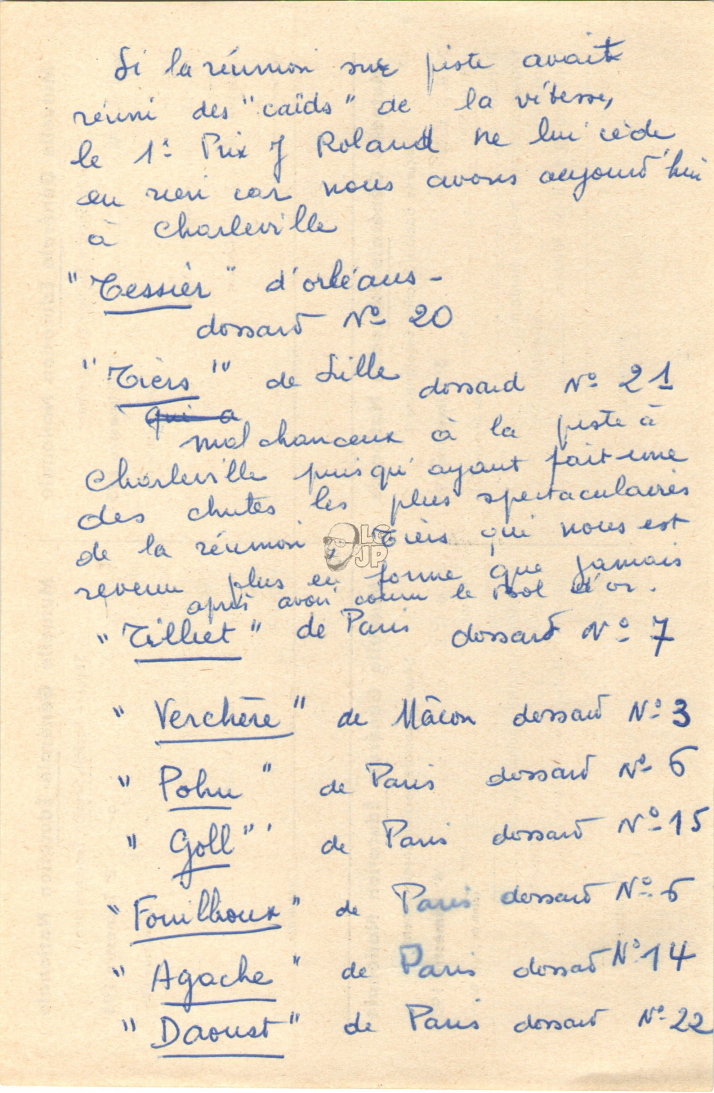 Si la réunion sur piste avait
réuni des "caïds" de la vitesse,
le 1er Prix J Roland ne lui cède
en rien car nous avons aujourd'hui
à Charleville
"Tessier" d'orléans -
dossard No 20
"Tiers" de Lille dossard No 21
qui a
malchanceux à la piste à
Charleville puisqu'ayant fait une
des chutes les plus spectaculaires
de la réunion Tiers qui nous est
revenu plus en forme que jamais
après avoir couru le bol d'or.
"Tilliet" de Paris dossard No 7
"Verchère" de Mâcon dossard No 3
"Pohu" de Paris dossard No 6
"Goll" de Paris dossard No 15
"Fouilhoux" de Paris dossard No 6
"Agache" de Paris dossard No 14
"Daoust" de Paris dossard No 22
LG
JP